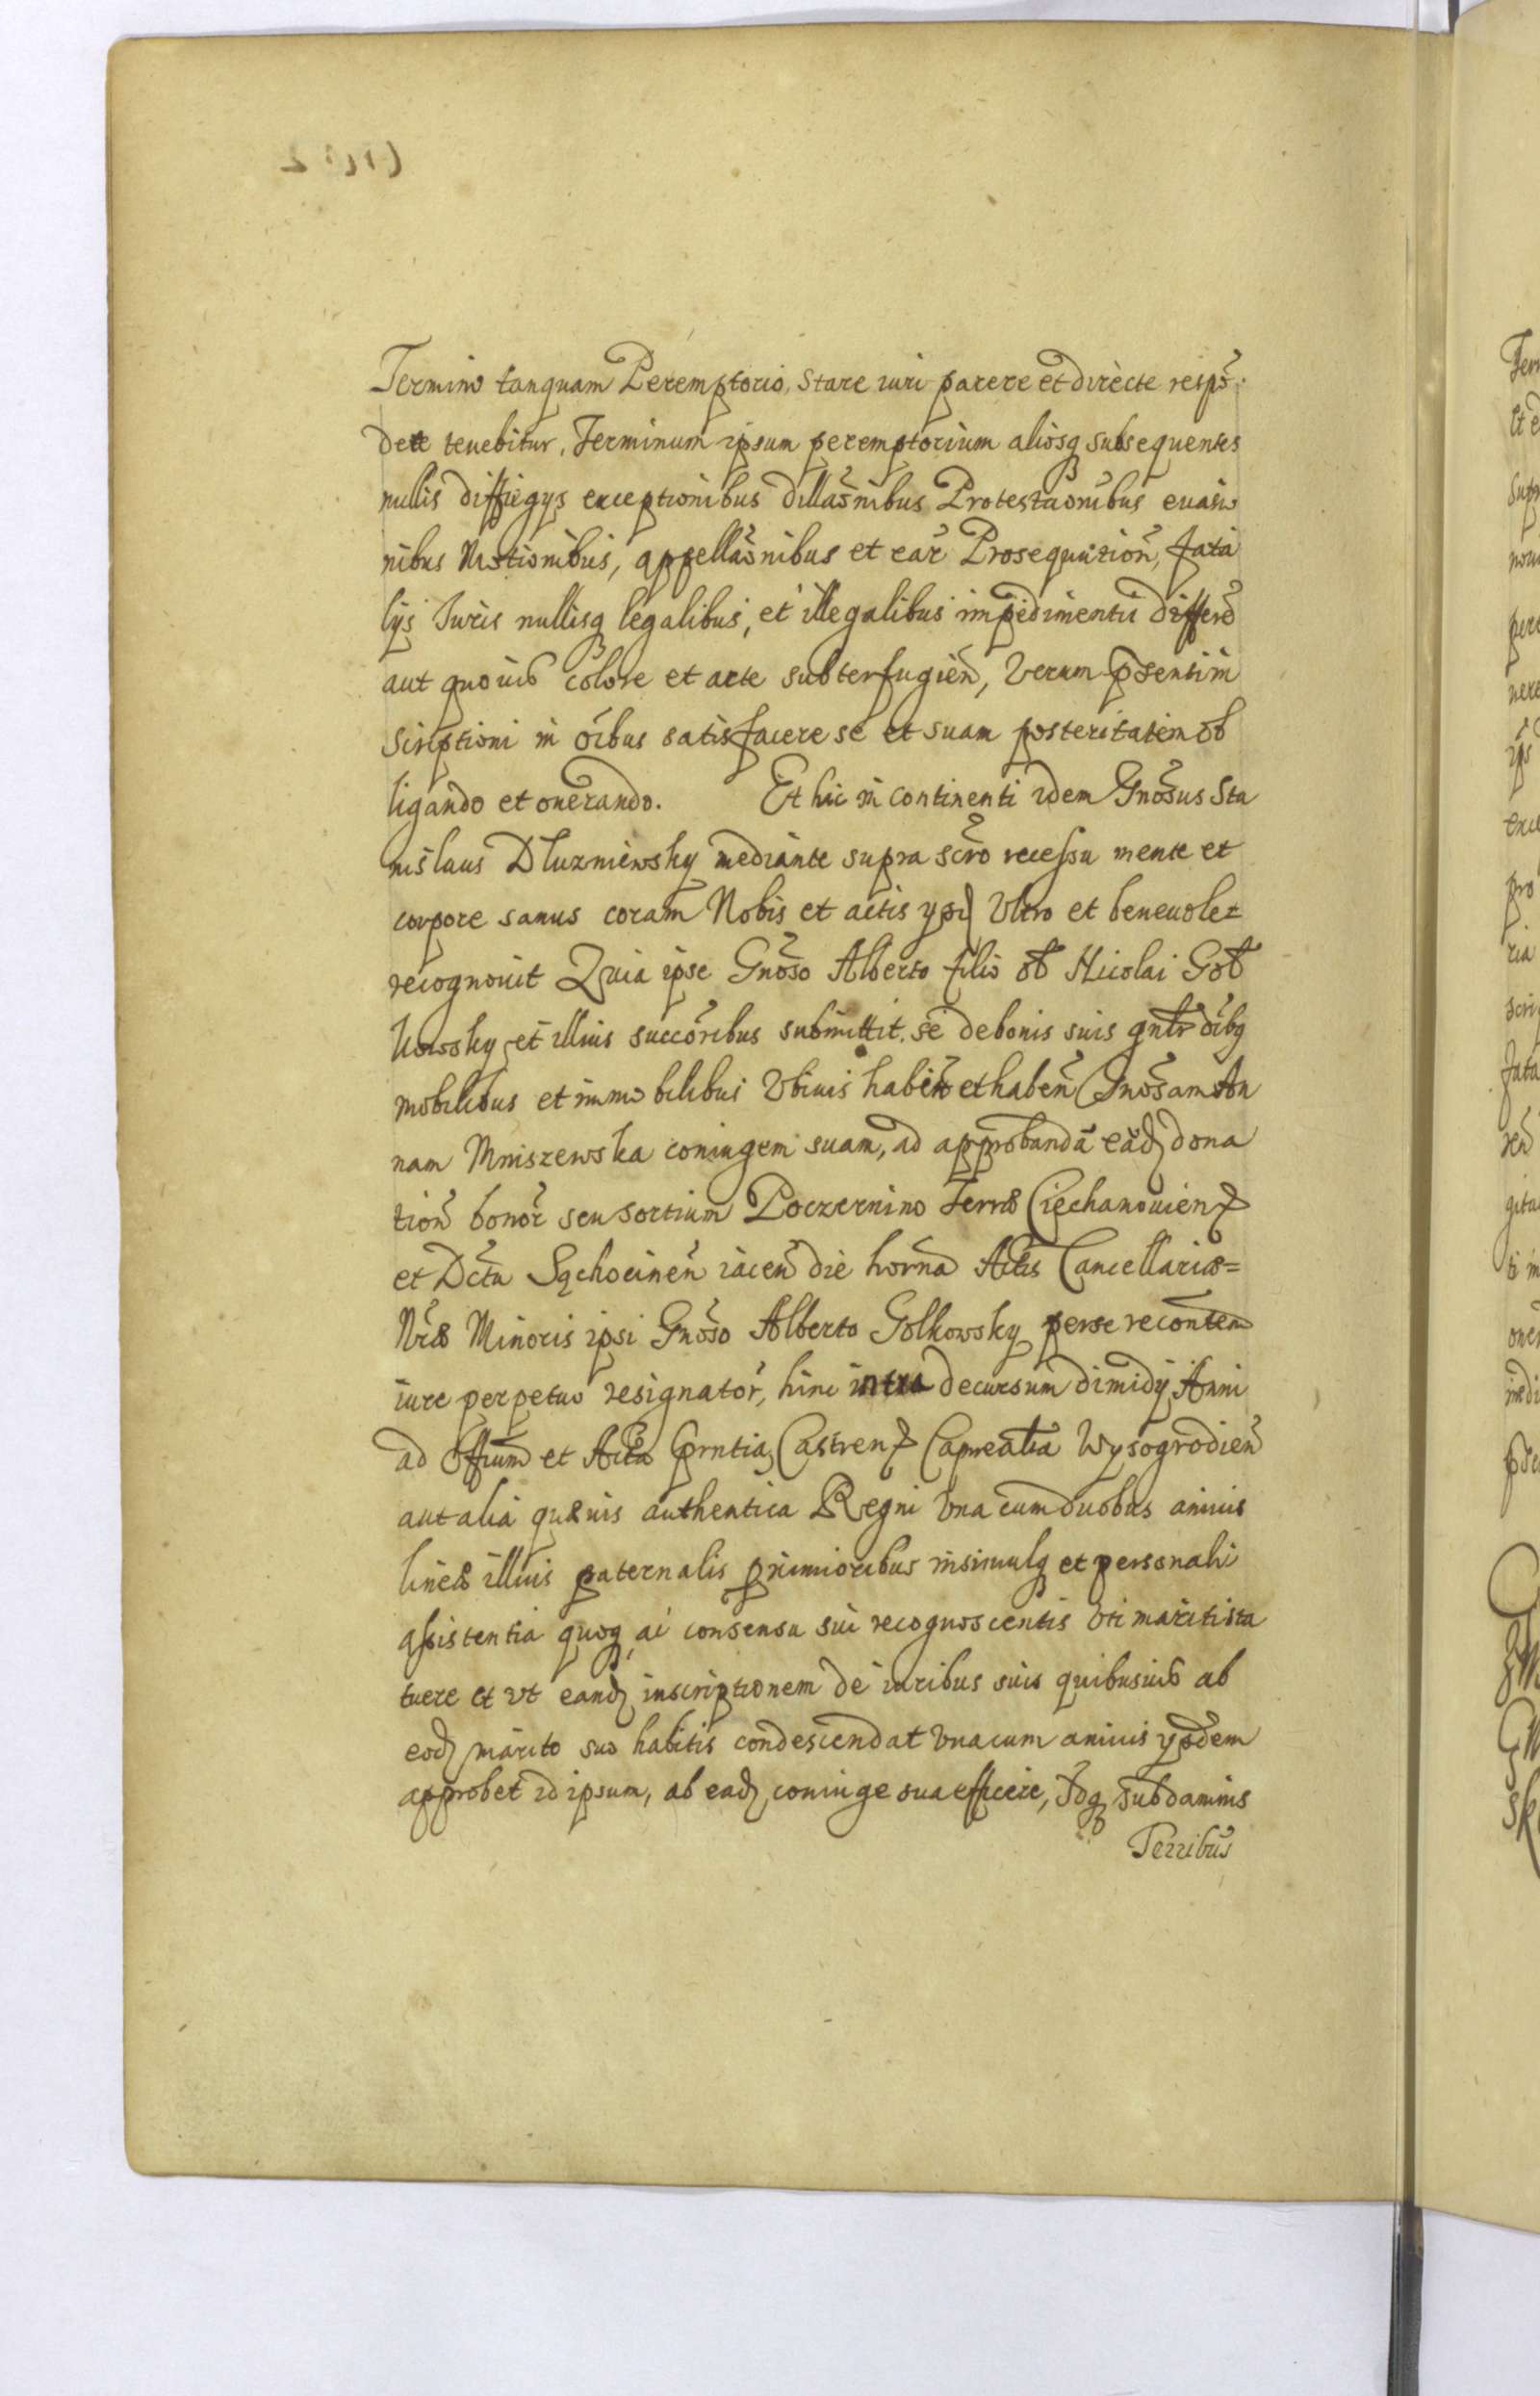 Termino tanquam Peremptorio, Stare iuri parere et directe respõ
dere tenebitur, Terminum ipsum peremptorium aliosq subsequentes
nullis diffugys exceptionibus dillaõnibus Protestaõnibus euasio
nibus Motionibus, appellaõnibus et ear̃ Prosequution̄, fata
lys Juris nullisq legalibus, et illegalibus impedimentis differ̃
aut quouis colore et arte subterfugien̄, Verum p̃senti in
scriptioni in oĩbus satisfacere se et suam posteritatem ob
ligando et onerando. Et hic in continenti idem Gnõsus Sta
nislaus Dluzniewsky mediante supra scr̃o recessu mente et
corpore sanus coram Nobis et actis Vltro et beneuole
recognouit Quia ipse Gnõso Alberto filio ol̃ Nicolai Gol
kowsky et illius succoribus submittit se de bonis suis gñlr oĩbq
mobilibus et immobilibus Vbiuis habitis et haben̄ Gnõsam An
nam Mniszewska coniugem suam, ad approbandã eãd dona
tion̄ bonor̃ seu sortium Poczernino Terræ Ciechanouien
et Dc̃tu Sąchocinen̄ iacen̄ die horna Actis Cancellariæ
Nr̃æ Minoris ipsi Gnõso Alberto Golkowsky per se reconten
iure perpetuo resignator̃, hinc intra decursum dimidÿ Anni
ad Offium et Acta Castren Capnealia Wysogrodien̄
aut alia quæuis authentica Regni Vna cum duobus amicis
lineæ illius paternalis primioribus insimulq et personali
assistentia quoq ac consensu sui recognoscentis Vti mariti sta
tuere et vt eand inscriptionem de iuribus suis quibusuis ab
eod marito suo habitis condescendat Vna cum amicis ysdem
approbet id ipsum, ab ead coniuge sua efficere, Idq sub damnis
Terribus